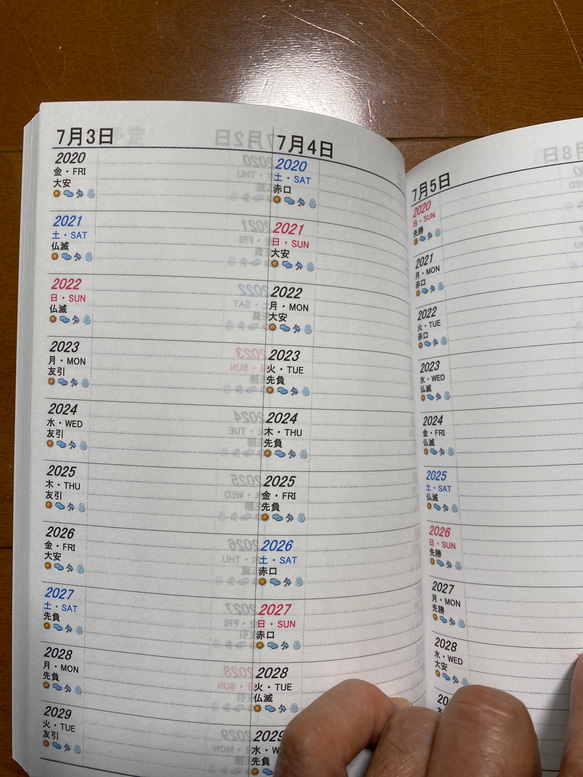 7月3日
2020
金・FRI
大安
2021
土・SAT
仏滅
2022
日・SUN
仏滅
2023
月・MON
友引
2024
水・WED
友引
2025
木・THU
友引
2026
金・FRI
大安
2027
土・SAT
先負
2028
月・MON
先負
2029
火・TUE
友引
7月4日
2020
土・SAT
赤口
2021
日・SUN
大安
2022
月・MON
大安
2023
火・TUE
先負
2024
木・THU
先負
2025
金・FRI
先負
2026
土・SAT
赤口
2027
日・SUN
赤口
2028
火・TUE
仏滅
2029
水・W
先負
7月5日
2020
日・SUN
先勝
2021
月・MON
赤口
2022
火・TUE
赤口
2023
水・WED
仏滅
2024
金・FRI
仏滅
2025
土・SAT
仏滅
2026
日・SUN
先勝
2027
月・MON
先勝
2028
水・WED
大安